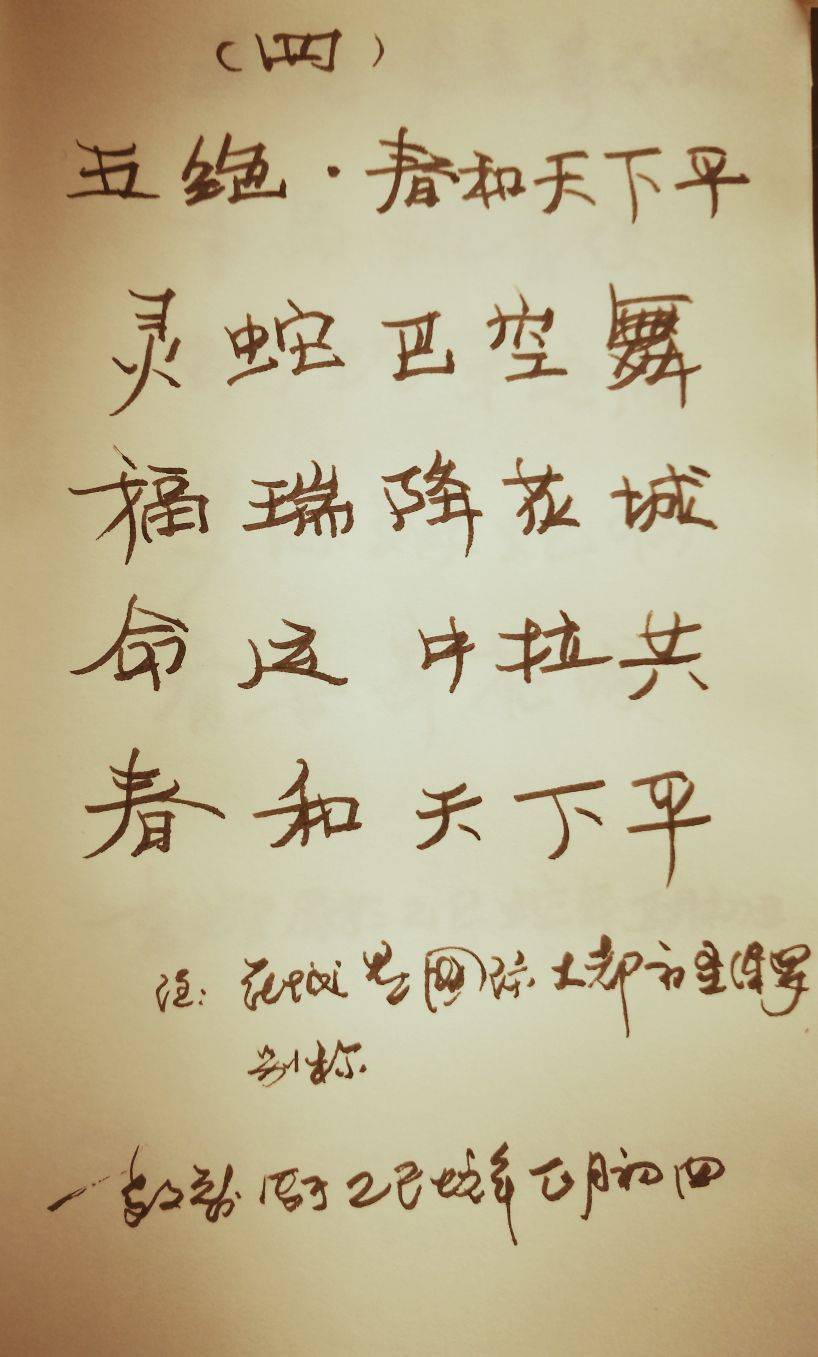 （四）
五绝·春和天下平
灵蛇巴空舞
福瑞降花城
命运中拉共
春和天下平
注：花城是国际大都市圣保罗
别称
于乙巳蛇年正月初四